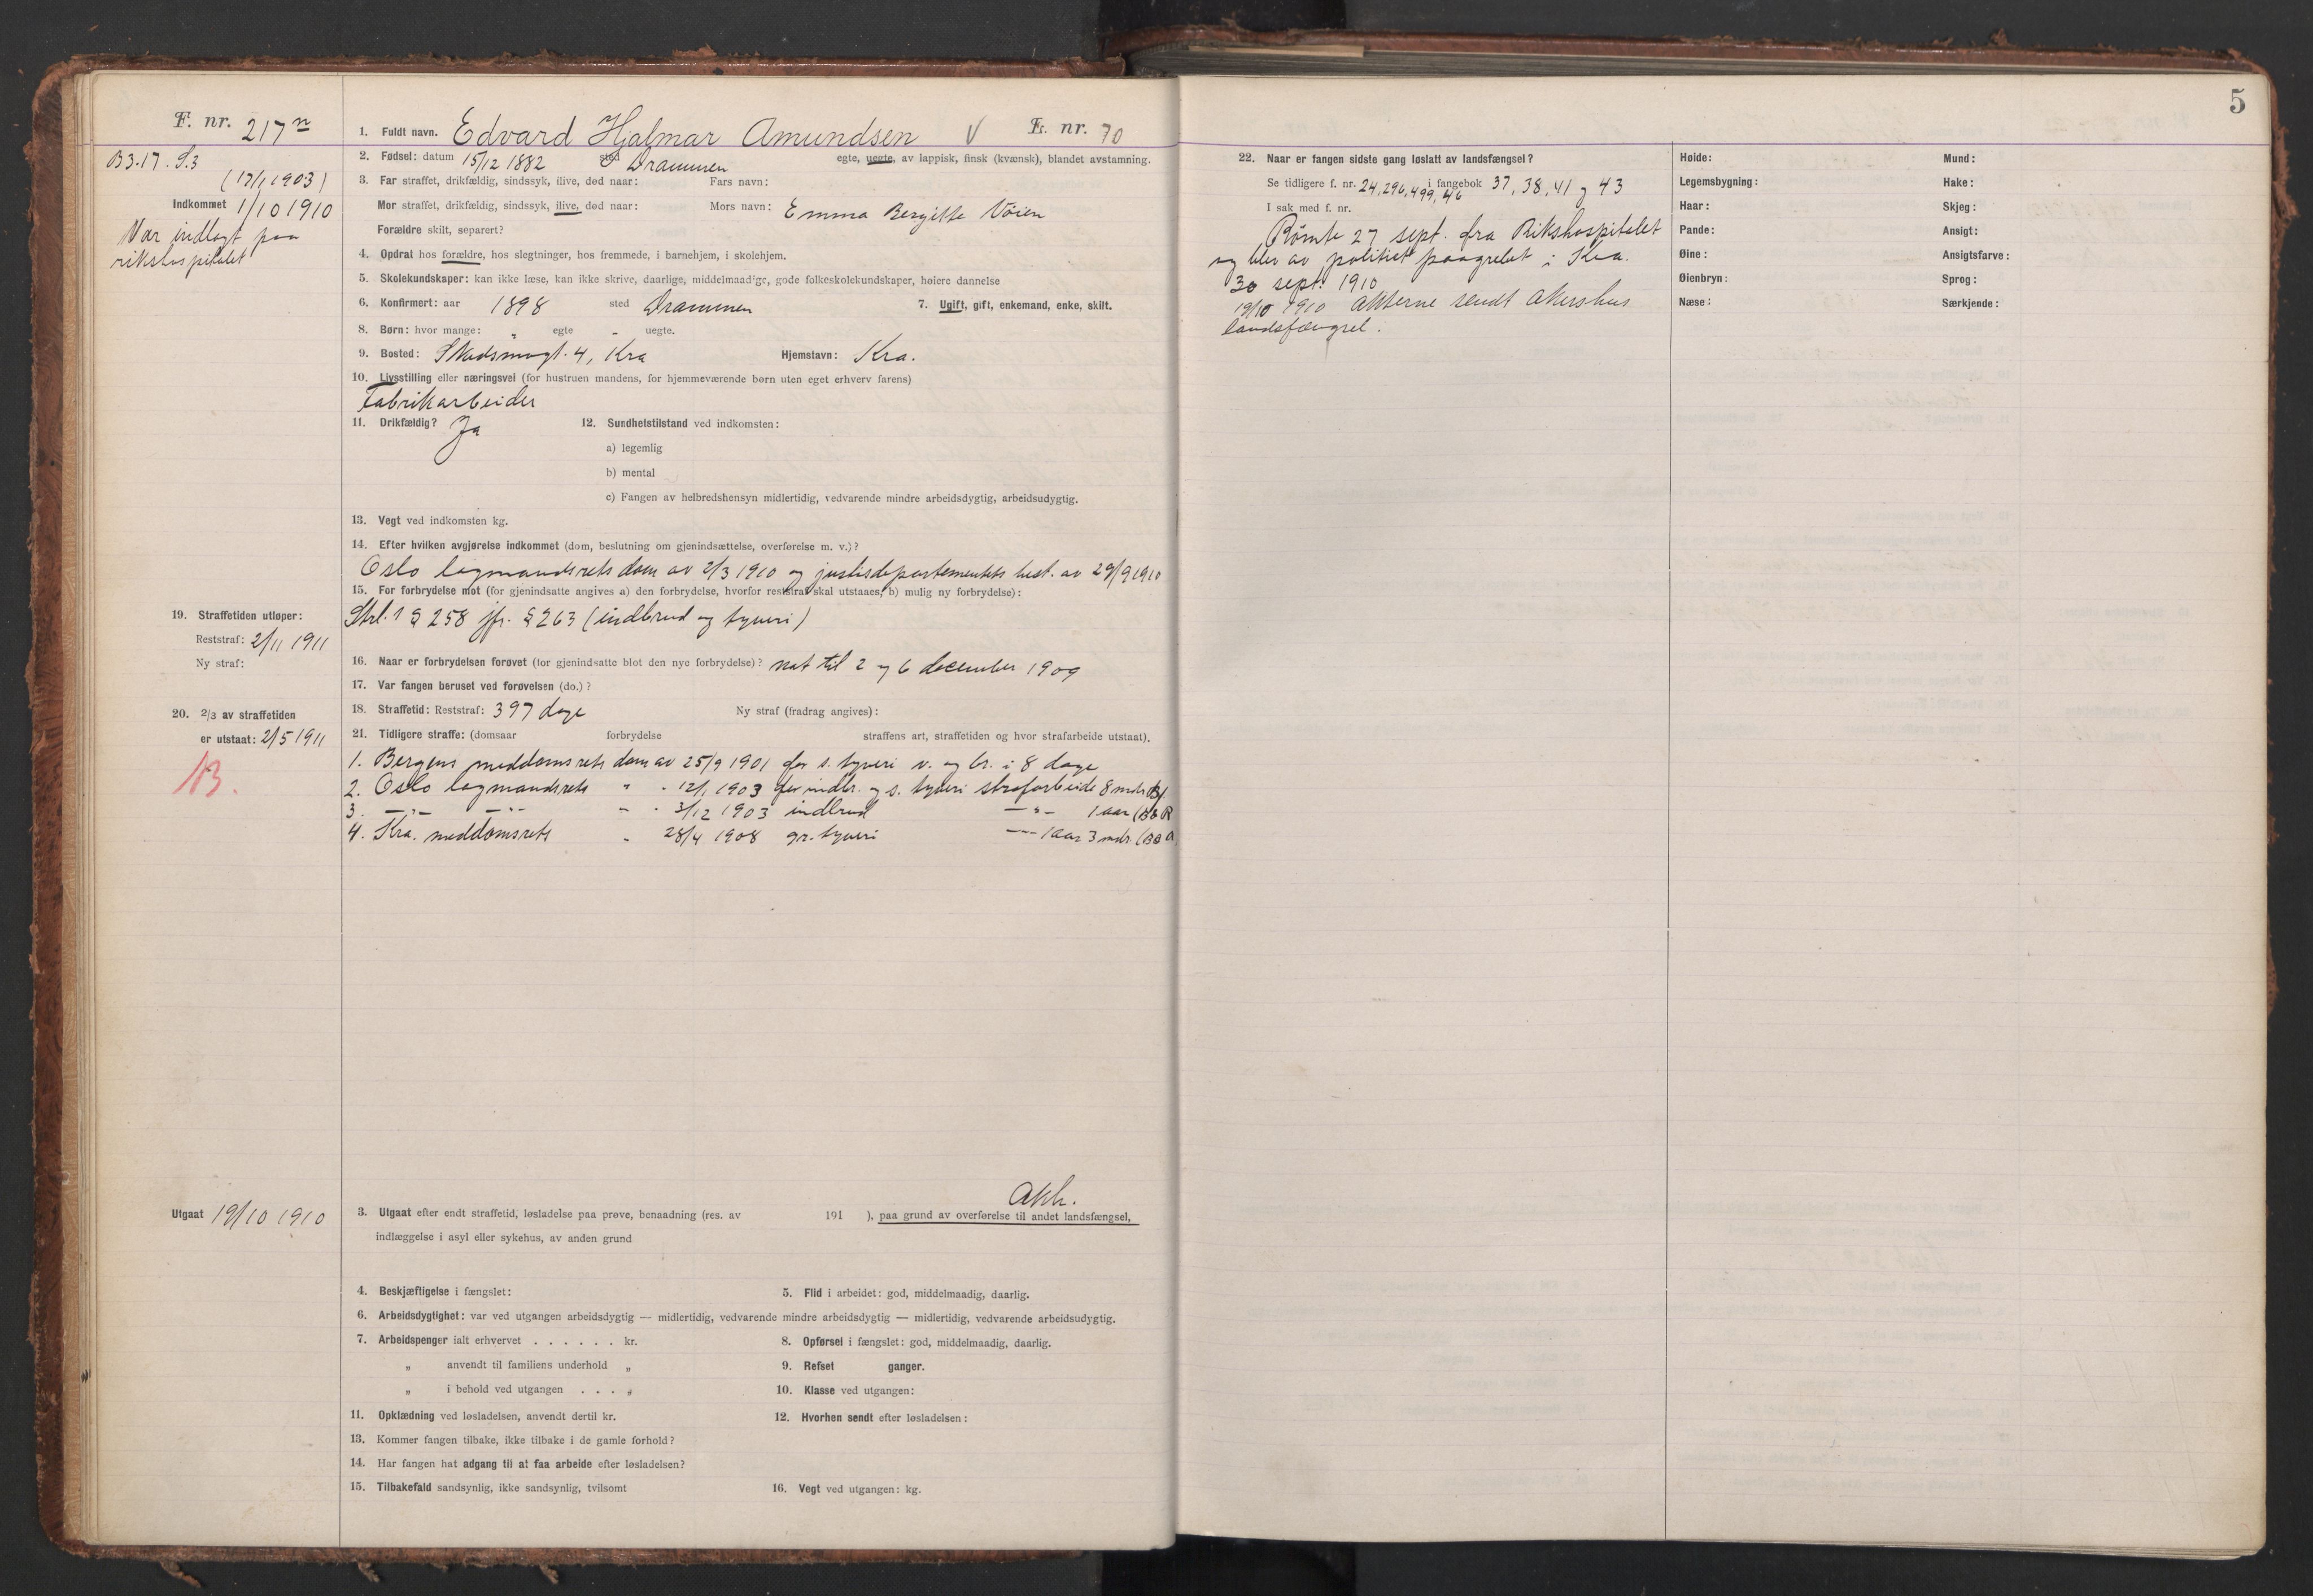 5
F. nr. 217 n
1. Fuldt navn. Edvard Hjalmar Amundsen V L. nr. 70
B3.17. S.3
(17/1 1903)
Indkommet 1/10 1910
Var indlagt paa
rikshospitalet
2. Fødsel: datum 15/12 1882 sted Drammen egte, uegte, av lappisk, finsk (kvænsk), blandet avstamning.
3. Far straffet, drikfældig, sindssyk, ilive, død naar: Fars navn:
Mor straffet, drikfældig, sindssyk, ilive, død naar: Mors navn: Emma Bergitte Vöien
Forældre skilt, separert?
4. Opdrat hos forældre, hos slegtninger, hos fremmede, i barnehjem, i skolehjem.
5. Skolekundskaper: kan ikke læse, kan ikke skrive, daarlige, middelmaadige, gode folkeskolekundskaper, høiere dannelse
6. Konfirmert: aar 1898 sted Drammen 7. Ugift, gift, enkemand, enke, skilt.
8. Børn: hvor mange: " egte " uegte.
9. Bosted: 4, Kra Hjemstavn: Kra.
10. Livsstilling eller næringsvei (for hustruen mandens, for hjemmeværende børn uten eget erhverv farens)
Fabrikarbeider
11. Drikfældig? Ja 12. Sundhetstilstand ved indkomsten:
a) legemlig
b) mental
c) Fangen av helbredshensyn midlertidig, vedvarende mindre arbeidsdygtig, arbeidsudygtig.
13. Vegt ved indkomsten kg.
14. Efter hvilken avgjørelse indkommet (dom, beslutning om gjenindsættelse, overførelse m. v.)?
Oslo lagmandsrets dom av 2/3 1910 og justisdepartementets best. av 29/9 1910
15. For forbrydelse mot (for gjenindsatte angives a) den forbrydelse, hvorfor reststraf skal utstaaes, b) mulig ny forbrydelse):
Strl. § 258 jfr. § 263 (indbrud og tyveri)
16. Naar er forbrydelsen forøvet (for gjenindsatte blot den nye forbrydelse)? nat til 2 og 6 december 1909
17. Var fangen beruset ved forøvelsen (do.)?
18. Straffetid: Reststraf: 397 dage Ny straf (fradrag angives):
19. Straffetiden utløper:
Reststraf: 2/11 1911
Ny straf:
20. 2/3 av straffetiden
er utstaat: 2/5 1911
B.
21. Tidligere straffe: (domsaar forbrydelse straffens art, straffetiden og hvor strafarbeide utstaat).
1. Bergens meddomsrets dom av 25/9 1901 for s. tyveri v. og br. i 8 dage
2. Oslo lagmandsrets " " 12/1 1903 for indbr. og s. tyveri strafarbeide 8 mdr.
3. —"— —"— " " 3/12 1903 indbrud —"— 1 aar
4. Kra. meddomsrets " 28/4 1908 gr. tyveri —"— 1 aar 3 mdr.
Utgaat 19/10 1910
Akh.
3. Utgaat efter endt straffetid, løsladelse paa prøve, benaadning (res. av 191 ), paa grund av overførelse til andet landsfængsel,
indlæggelse i asyl eller sykehus, av anden grund
4. Beskjæftigelse i fængslet: 5. Flid i arbeidet: god, middelmaadig, daarlig.
6. Arbeidsdygtighet: var ved utgangen arbeidsdygtig — midlertidig, vedvarende mindre arbeidsdygtig — midlertidig, vedvarende arbeidsudygtig.
7. Arbeidspenger ialt erhvervet . . . . . . kr. 8. Opførsel i fængslet: god, middelmaadig, daarlig.
„ anvendt til familiens underhold „ 9. Refset ganger.
„ i behold ved utgangen . . . „ 10. Klasse ved utgangen:
11. Opklædning ved løsladelsen, anvendt dertil kr. 12. Hvorhen sendt efter løsladelsen:
13. Kommer fangen tilbake, ikke tilbake i de gamle forhold?
14. Har fangen hat adgang til at faa arbeide efter løsladelsen?
15. Tilbakefald sandsynlig, ikke sandsynlig, tvilsomt 16. Vegt ved utgangen: kg.
22. Naar er fangen sidste gang løslatt av landsfængsel?
Se tidligere f. nr. 24, 296, 499, 46 i fangebok 37, 38, 41 og 43
I sak med f. nr.
Rømte 27 sept. fra Rikshospitalet
og blev av politiet paagrebet i Kra.
30 sept. 1910
19/10 1910 akterne sendt Akershus
landsfængsel.
Høide: Mund:
Legemsbygning: Hake:
Haar: Skjeg:
Pande: Ansigt:
Øine: Ansigtsfarve:
Øienbryn: Sprog:
Næse: Særkjende: